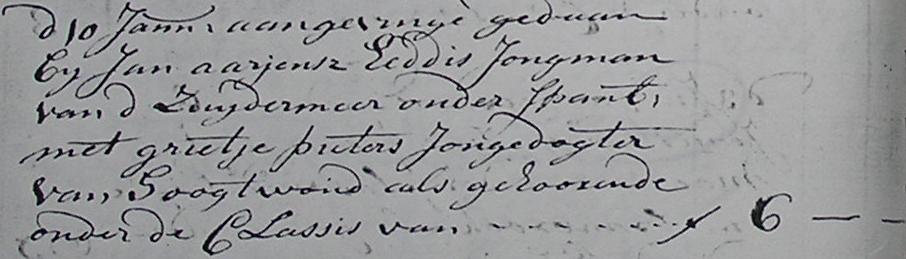 d 10 Jann: aangevinge gedaan
by Jan aarjensz Leddis Jongman
van d Zuydermeer onder Spant,
met grietje pieters Jongedogter
van Hoogtwoud als gehoorende
onder de Classis van - - - - - - - f 6 — -